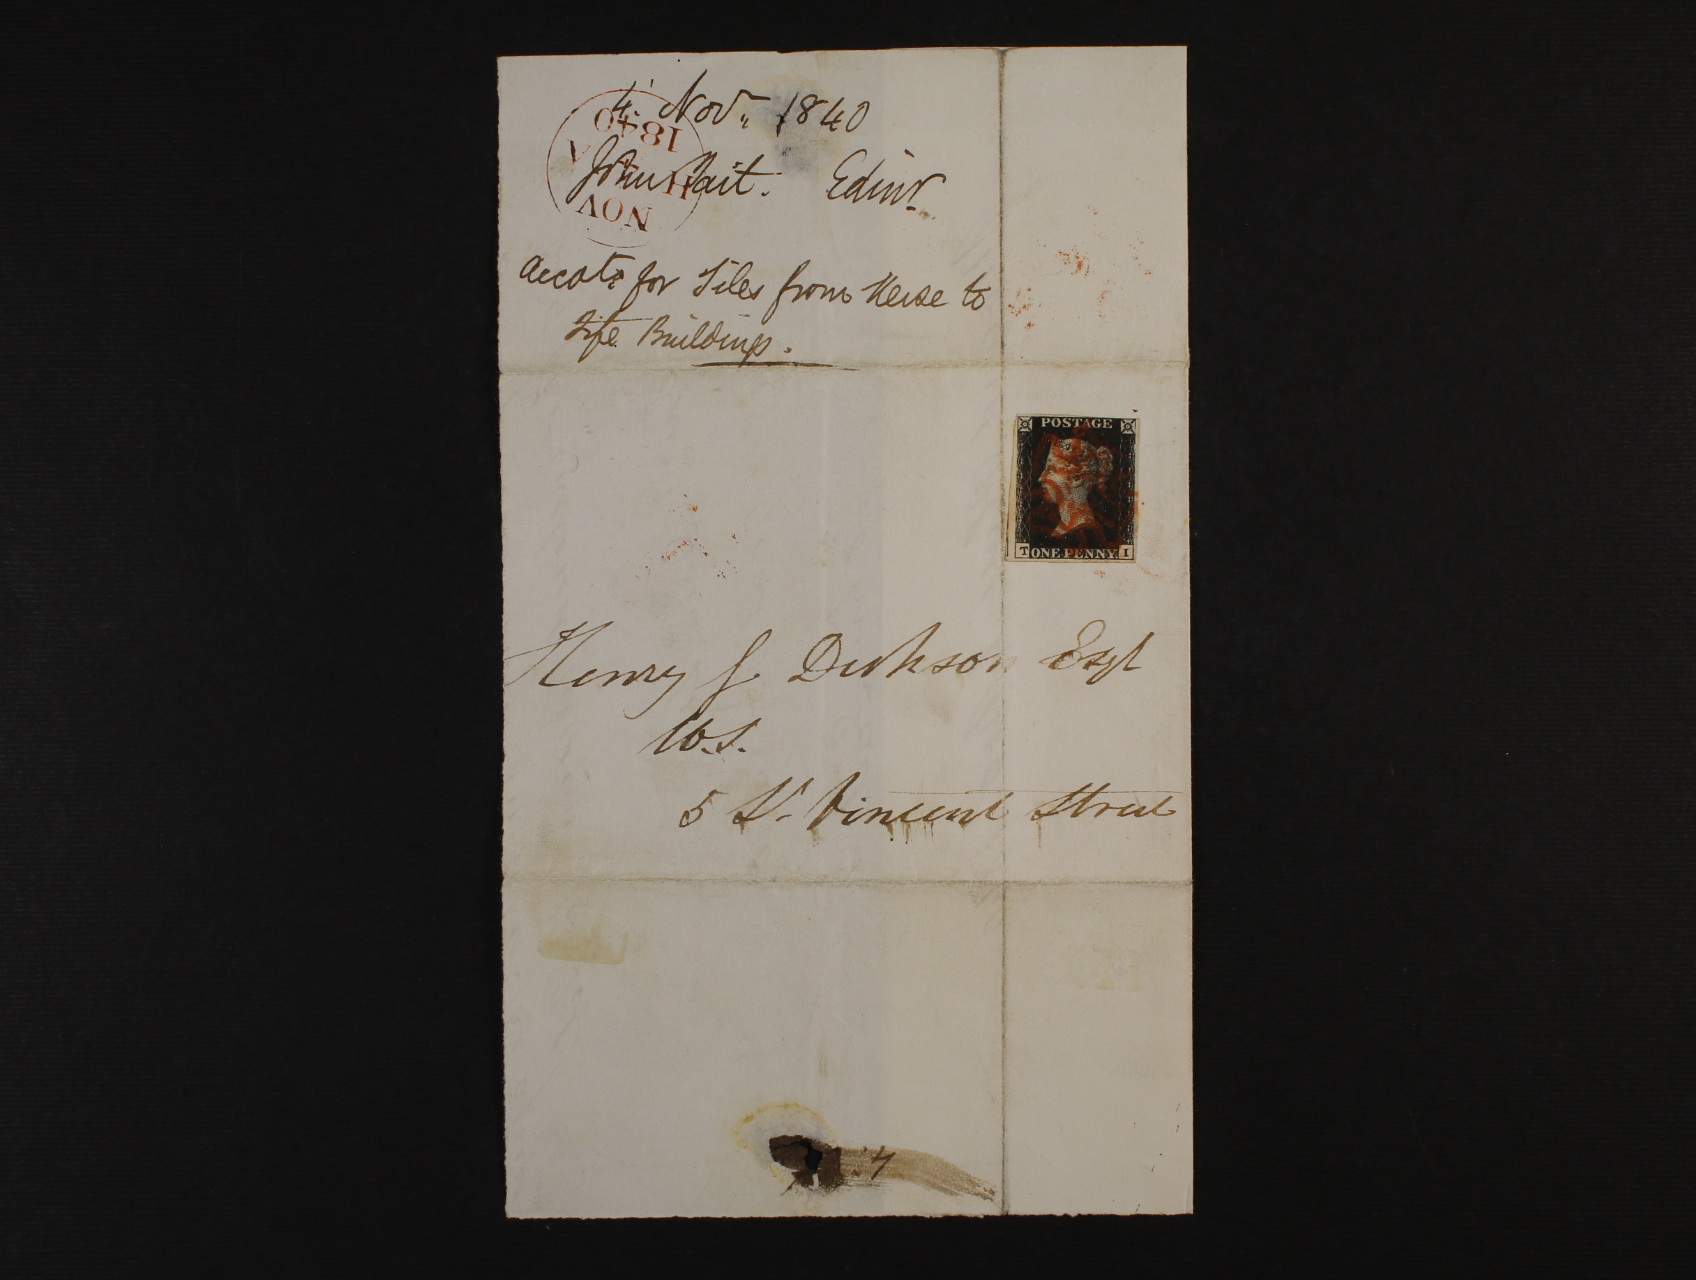 4. Nov. 1840
John Tait. Edinr.
Accots for Tiles from Kerse to
Fife Buildings.
1840
A
NOV
POSTAGE
T ONE PENNY. I
Henry G Dickson Esqr
W.S.
5 St. Vincent Street
4